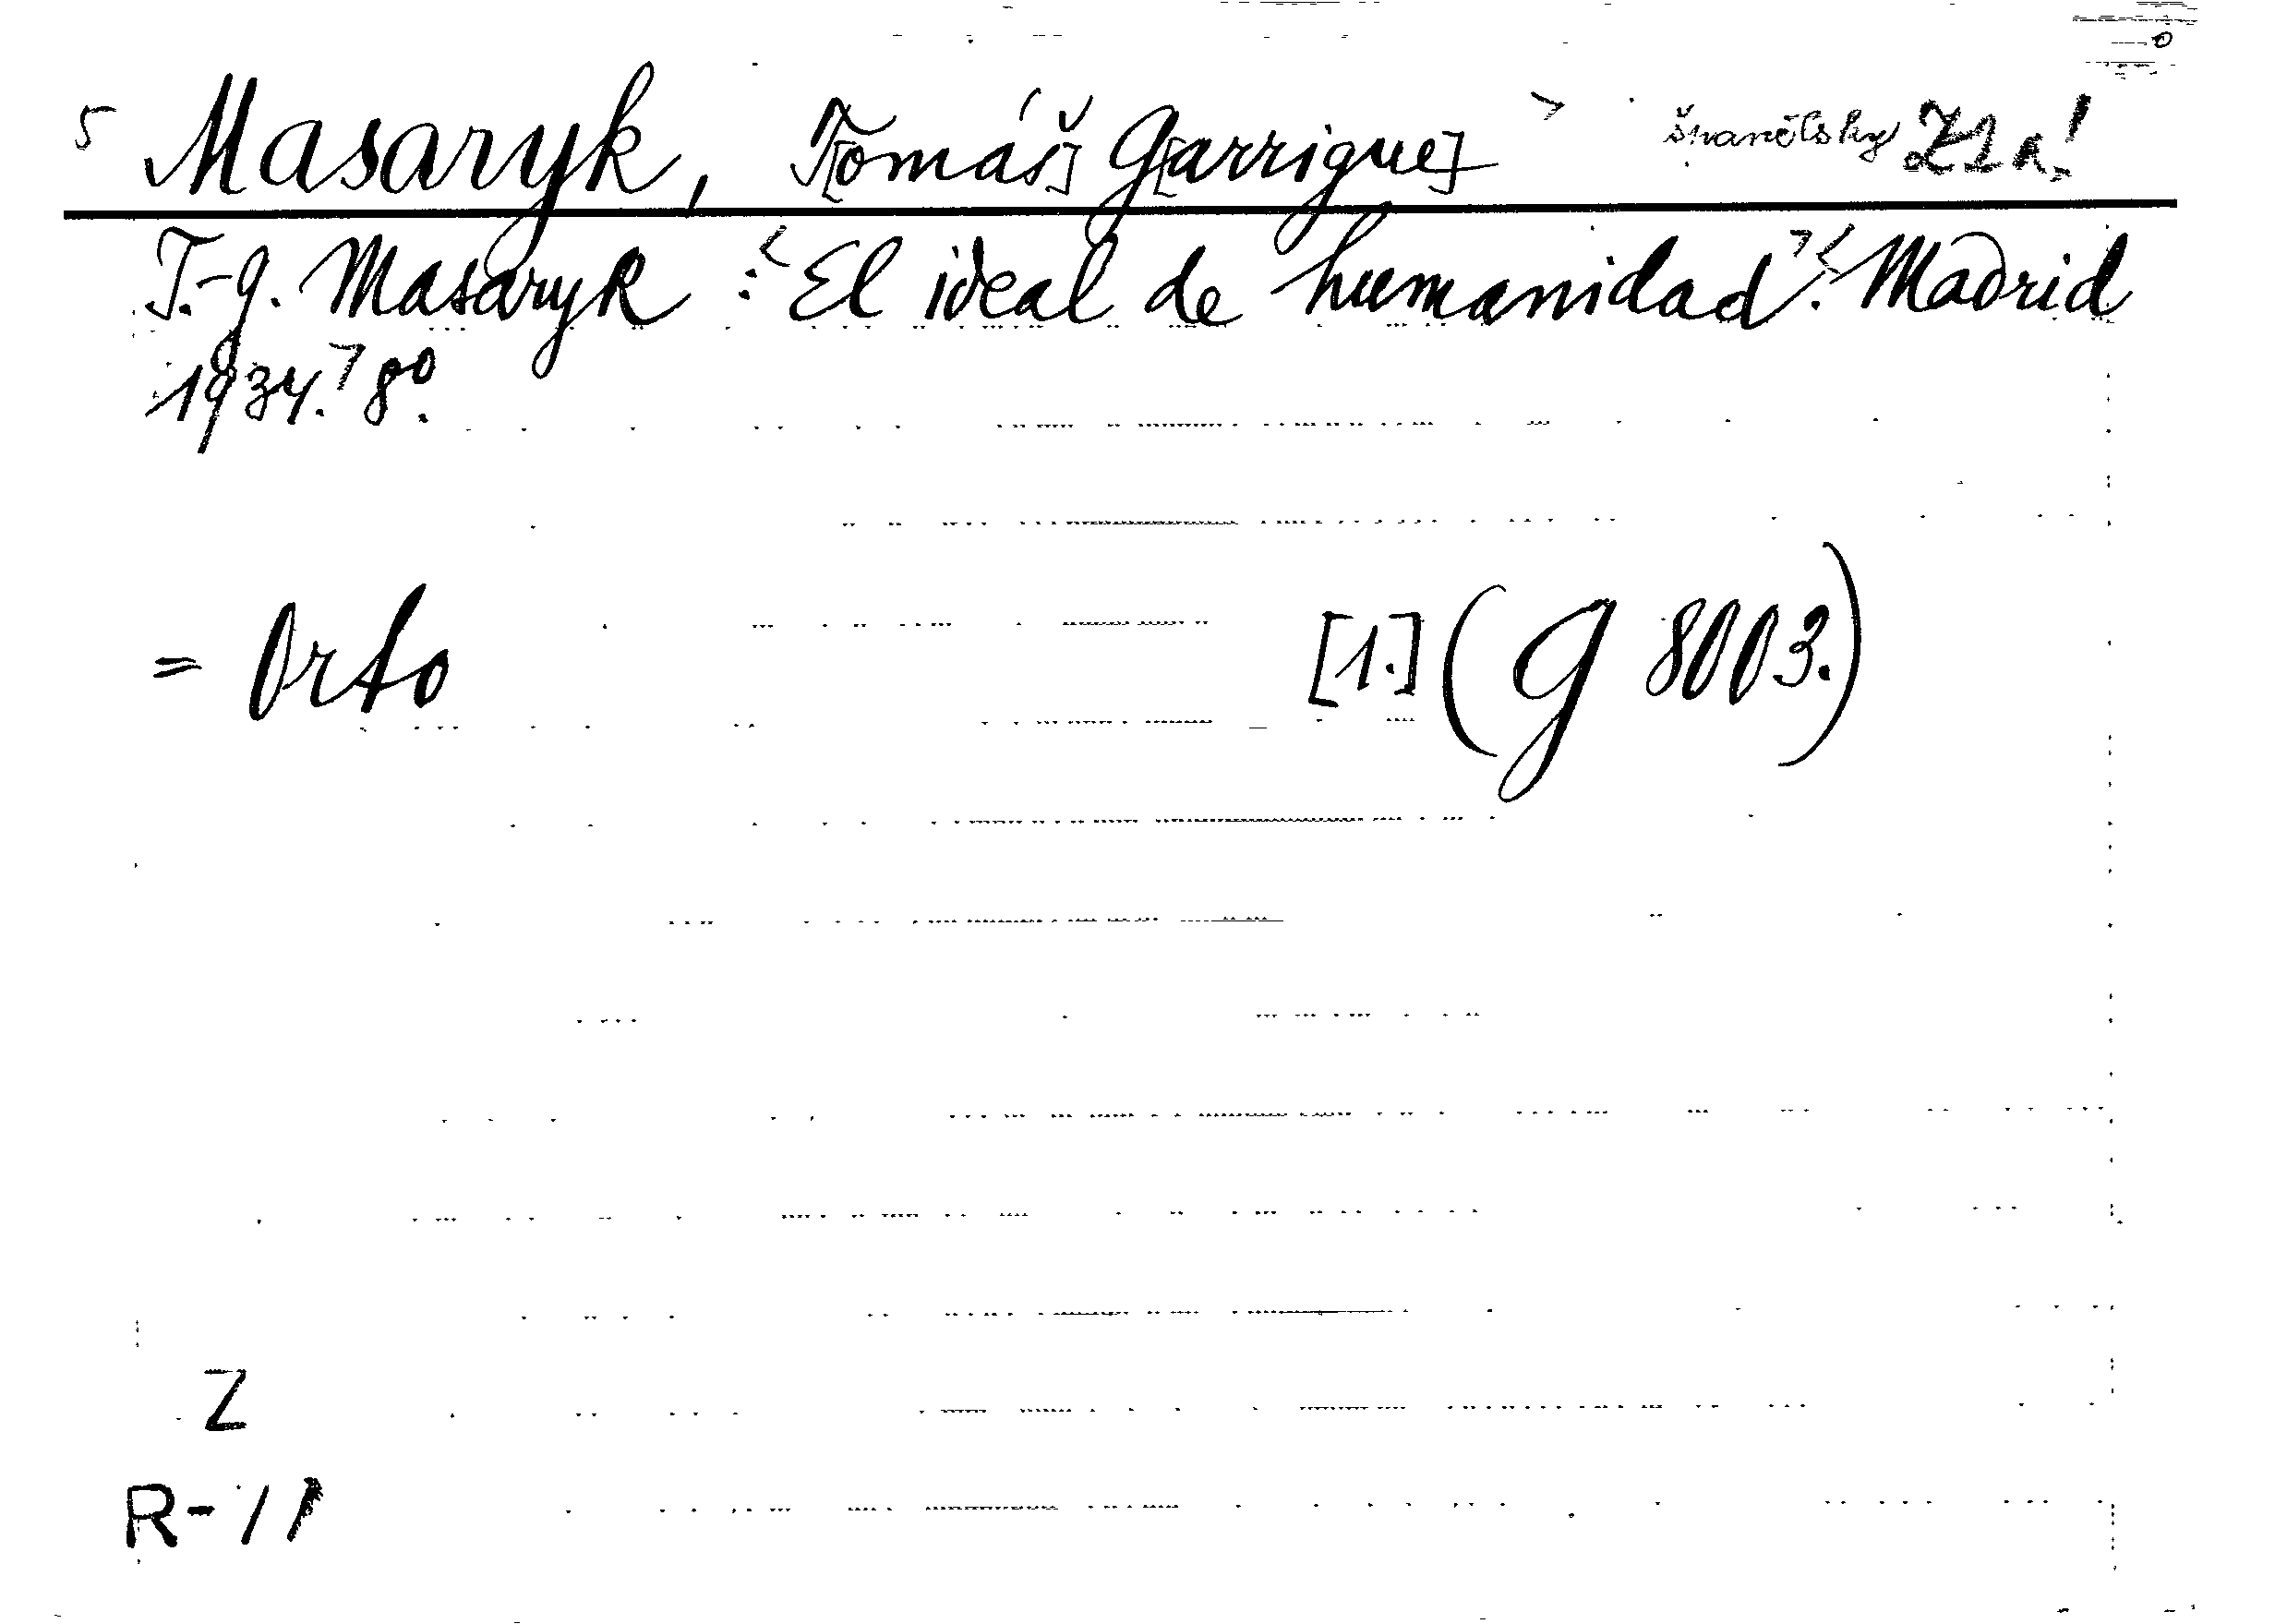 5 Masaryk, T[omáš] G[arrigue] španělsky Z1a!
T.-G. Masaryk : El ideal de humanidad. Madrid
1934. 8°.
= Orto [1.] (G 8003.)
Z
R-11